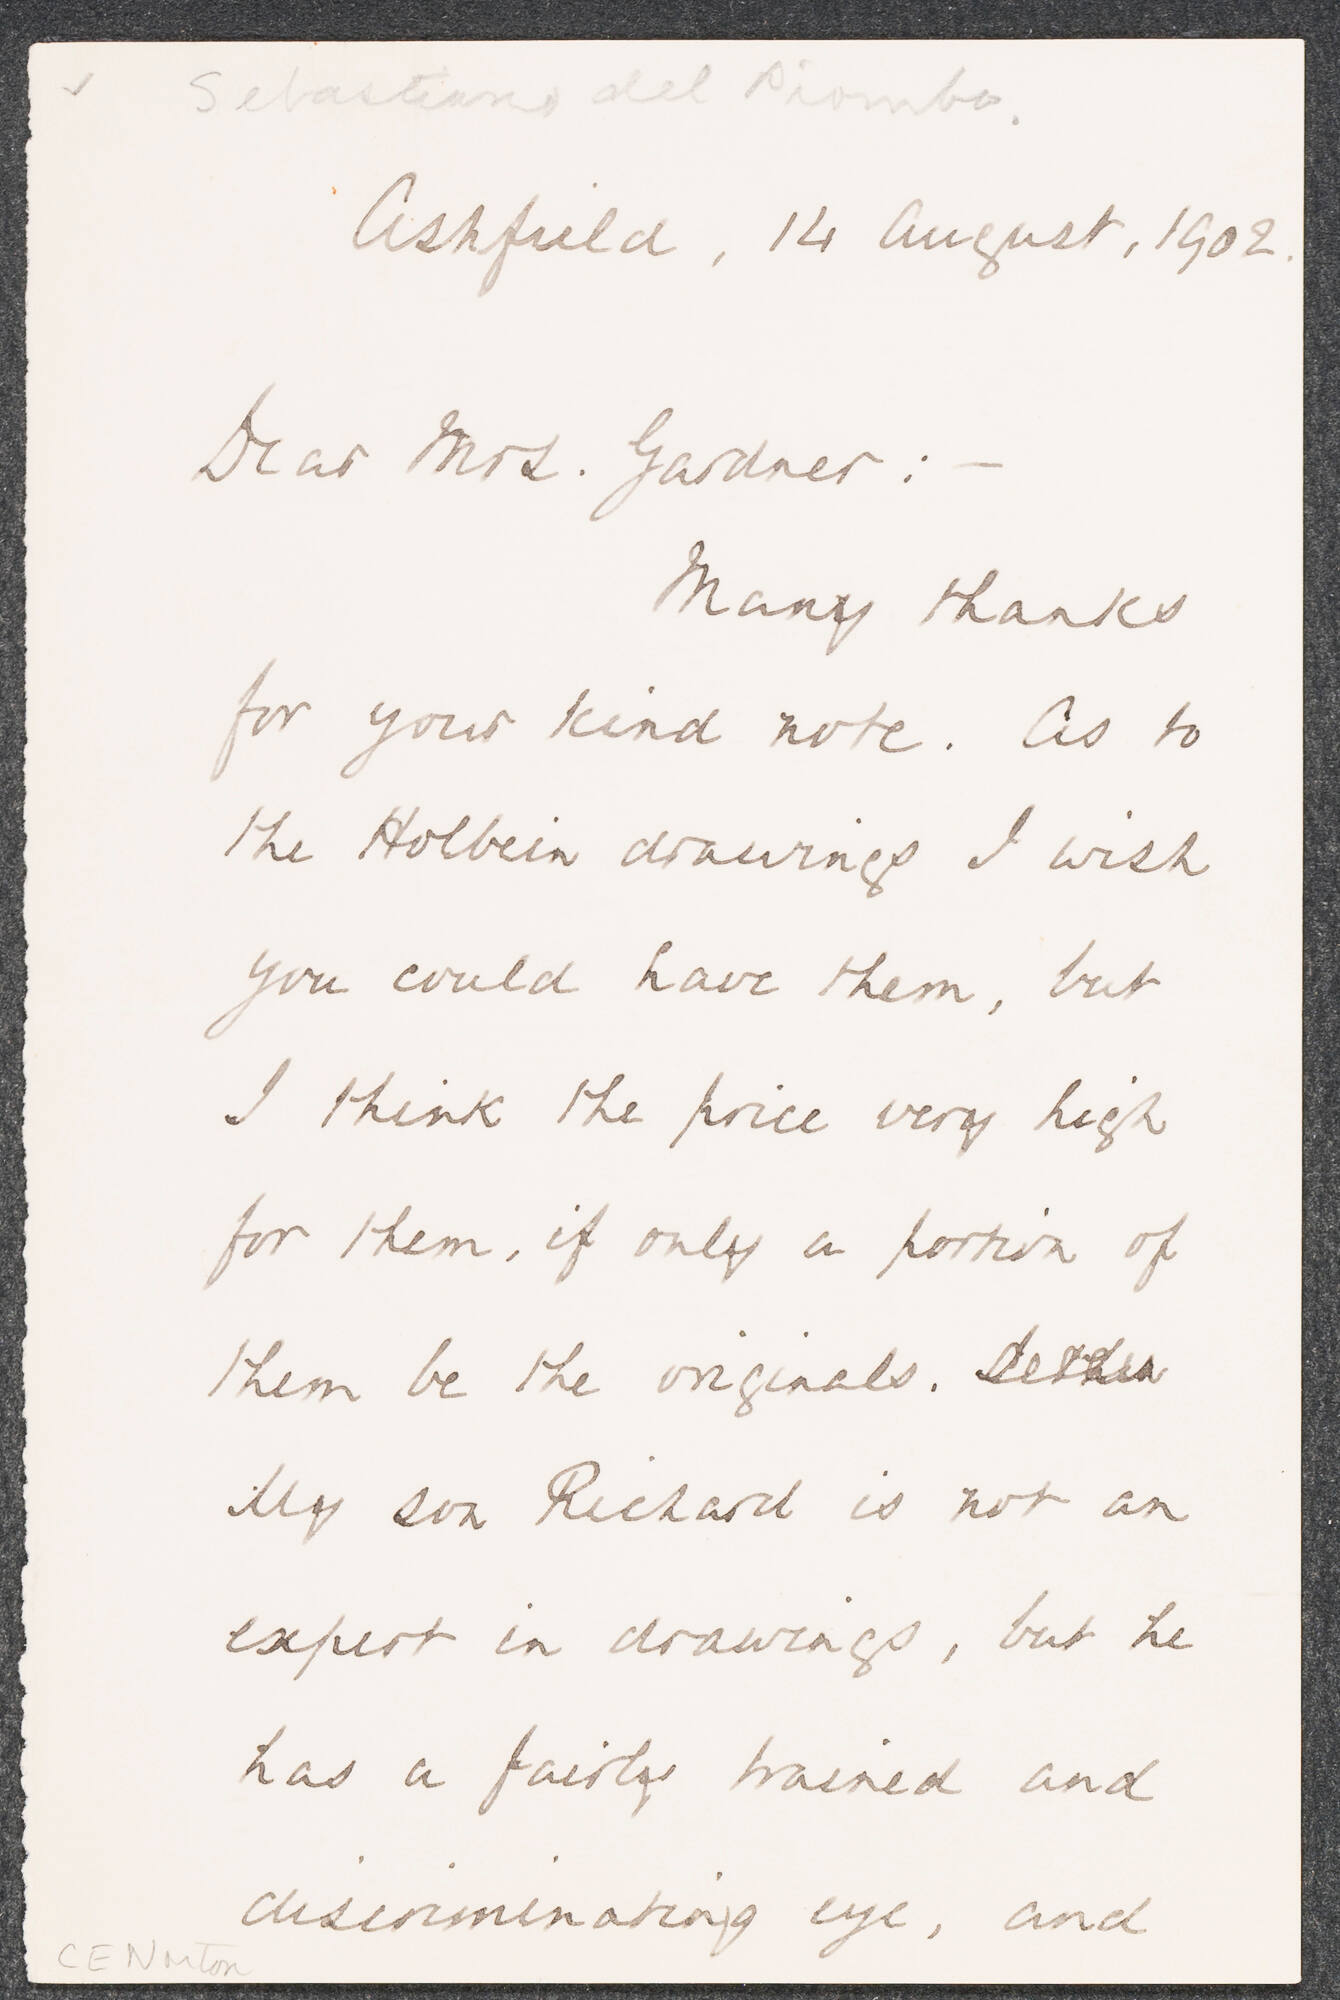 ✓ Sebastiano del Piombo.
Ashfield, 14 August, 1902.
Dear Mrs. Gardner:—
Many thanks
for your kind note. As to
the Holbein drawings I wish
you could have them, but
I think the price very high
for them, if only a portion of
them be the originals.
My son Richard is not an
expert in drawings, but he
has a fairly trained and
discriminating eye, and
C E Norton